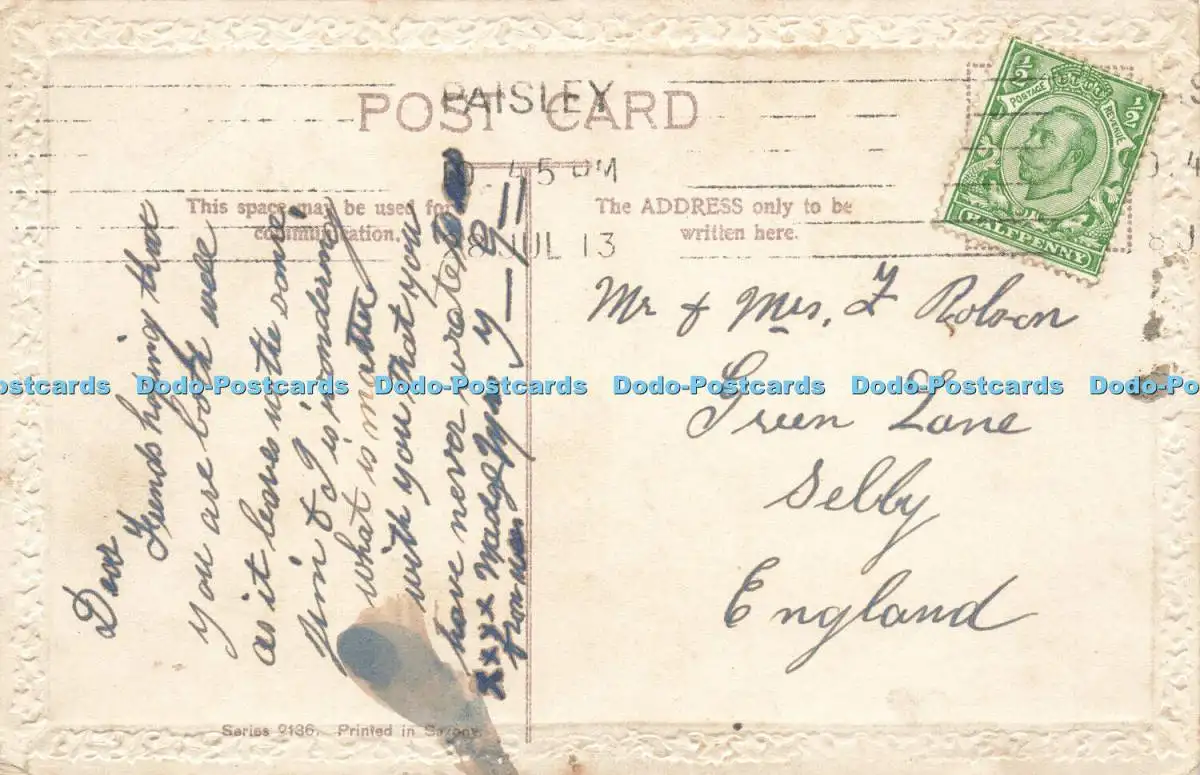 PAISLEY
POST CARD
10. 45 PM
8 JUL 13
This space may be used for
communication.
The ADDRESS only to be
written here.
½ ½
POSTAGE REVENUE
HALFPENNY
Mr & Mrs. F Robson
Green Lane
Selby
England
Dear
Friends hoping that
you are both well
as it leaves us the same
Jim & I is wondering
what is matter
with you that you
have never wrote
xxxx Madge
from
Series 9136. Printed in Saxony.
Dodo-Postcards Dodo-Postcards Dodo-Postcards Dodo-Postcards